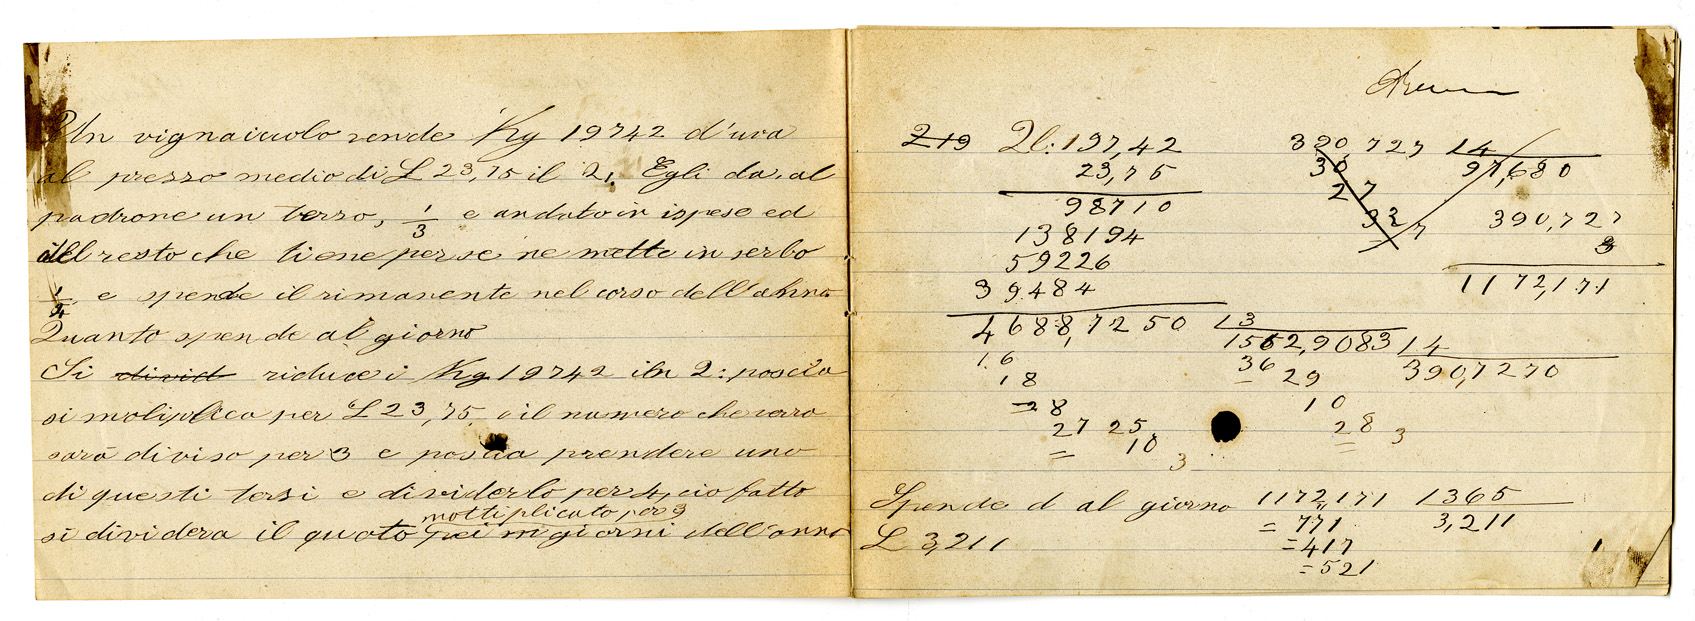 Un vignaiuolo vende Kg 19742 d'uva
al prezzo medio di L 23,75 il Ql. Egli da, al
padrone un terzo, 1/3 e andato in ispese ed
del resto che tiene per se ne mette in serbo
1/4 e spende il rimanente nel corso dell'anno
Quanto spende al giorno
Si divid riduce i Kg 19742 in Q: poscia
si moliplica per L 23,75 e il numero che verra
sarà diviso per 3 e poscia prendere uno
di questi terzi e dividerlo per 4, cio fatto
moltiplicato per 3
si dividera il quoto pei giorni dell'anno
219 Ql: 197,42
23,75
98710
138194
59226
39484
4688,7250 13
1562,9083 14
390,7270
16
18
28
27 25
10
3
36
29
10
28 3
390,727 14
97,680
30
27
32
7
390,727
3
1172,171
Spende d al giorno
L 3,211
1172,171 1365
3,211
= 771
= 417
= 521